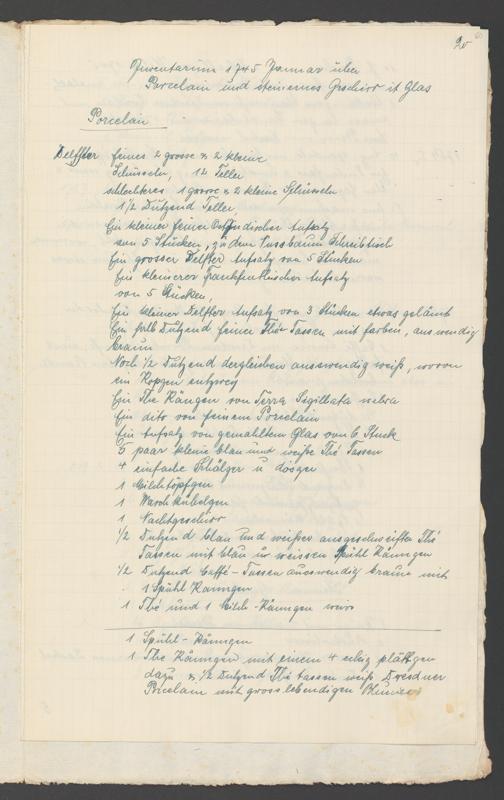 20
Inventarium 1745 Januar über
Porcelain und steinernes Geschirr it Glas
Porcelain
Delffter feines 2 grosse & 2 kleine
Schüsseln, 12 Teller
schlechteres 1 grosse & 2 kleine Schüsseln
1 1/2 Dutzend Teller
Ein kleiner feiner Aufsatz
von 5 Stücken, zu dem Nussbaum Schreibtisch
Ein grosser Delffter Aufsatz von 5 Stücken
Ein kleinerer Frankfurthischer Aufsatz
von 5 Stücken,
Ein kleiner Delffter Aufsatz von 3 Stücken etwas gelämt
Ein halb Dutzend feine Thé Tassen mit farben, auswendig
braun
Noch 1/2 Dutzend dergleichen ausswendig weiss, wovon
ein Köpgen entzwey
Ein The Kängen von Terra Sigillata
Ein dito von feinem Porcelain
Ein Aufsatz von gemahltem Glas von 6 Stuck
5 paar kleine blau und weisse Thé Tassen
4 einfache Schälger u
1 Milchtöpfgen
1 Waschkübelgen
1 Nachtgeschirr
1/2 Dutzend blau und weisse ausgeschweiffte Thé
Tassen mit blau u weissen Spühl Känngen
1/2 Dutzend Caffé-Tassen auswendig braun mit
1 Spühl Kanngen
1 Thé und 1 Milch-Känngen
1 Spühl-Känngen
1 The Känngen mit einem 4 eckig plättgen
dazu & 1/2 Dutzend Thé tassen weiss Dresdner
Porcelain mit gross lebendigen Blumen